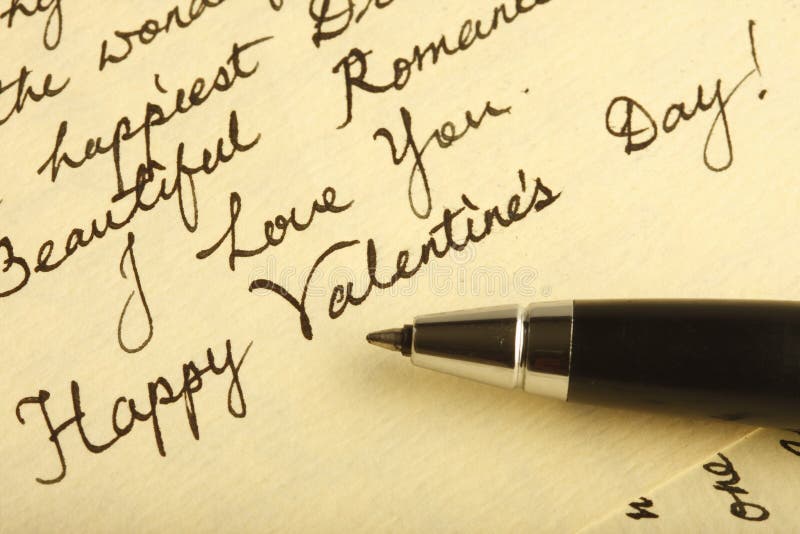 the wond
happiest Dr
Beautiful Romanc
I Love You.
Happy Valentine's Day!
one